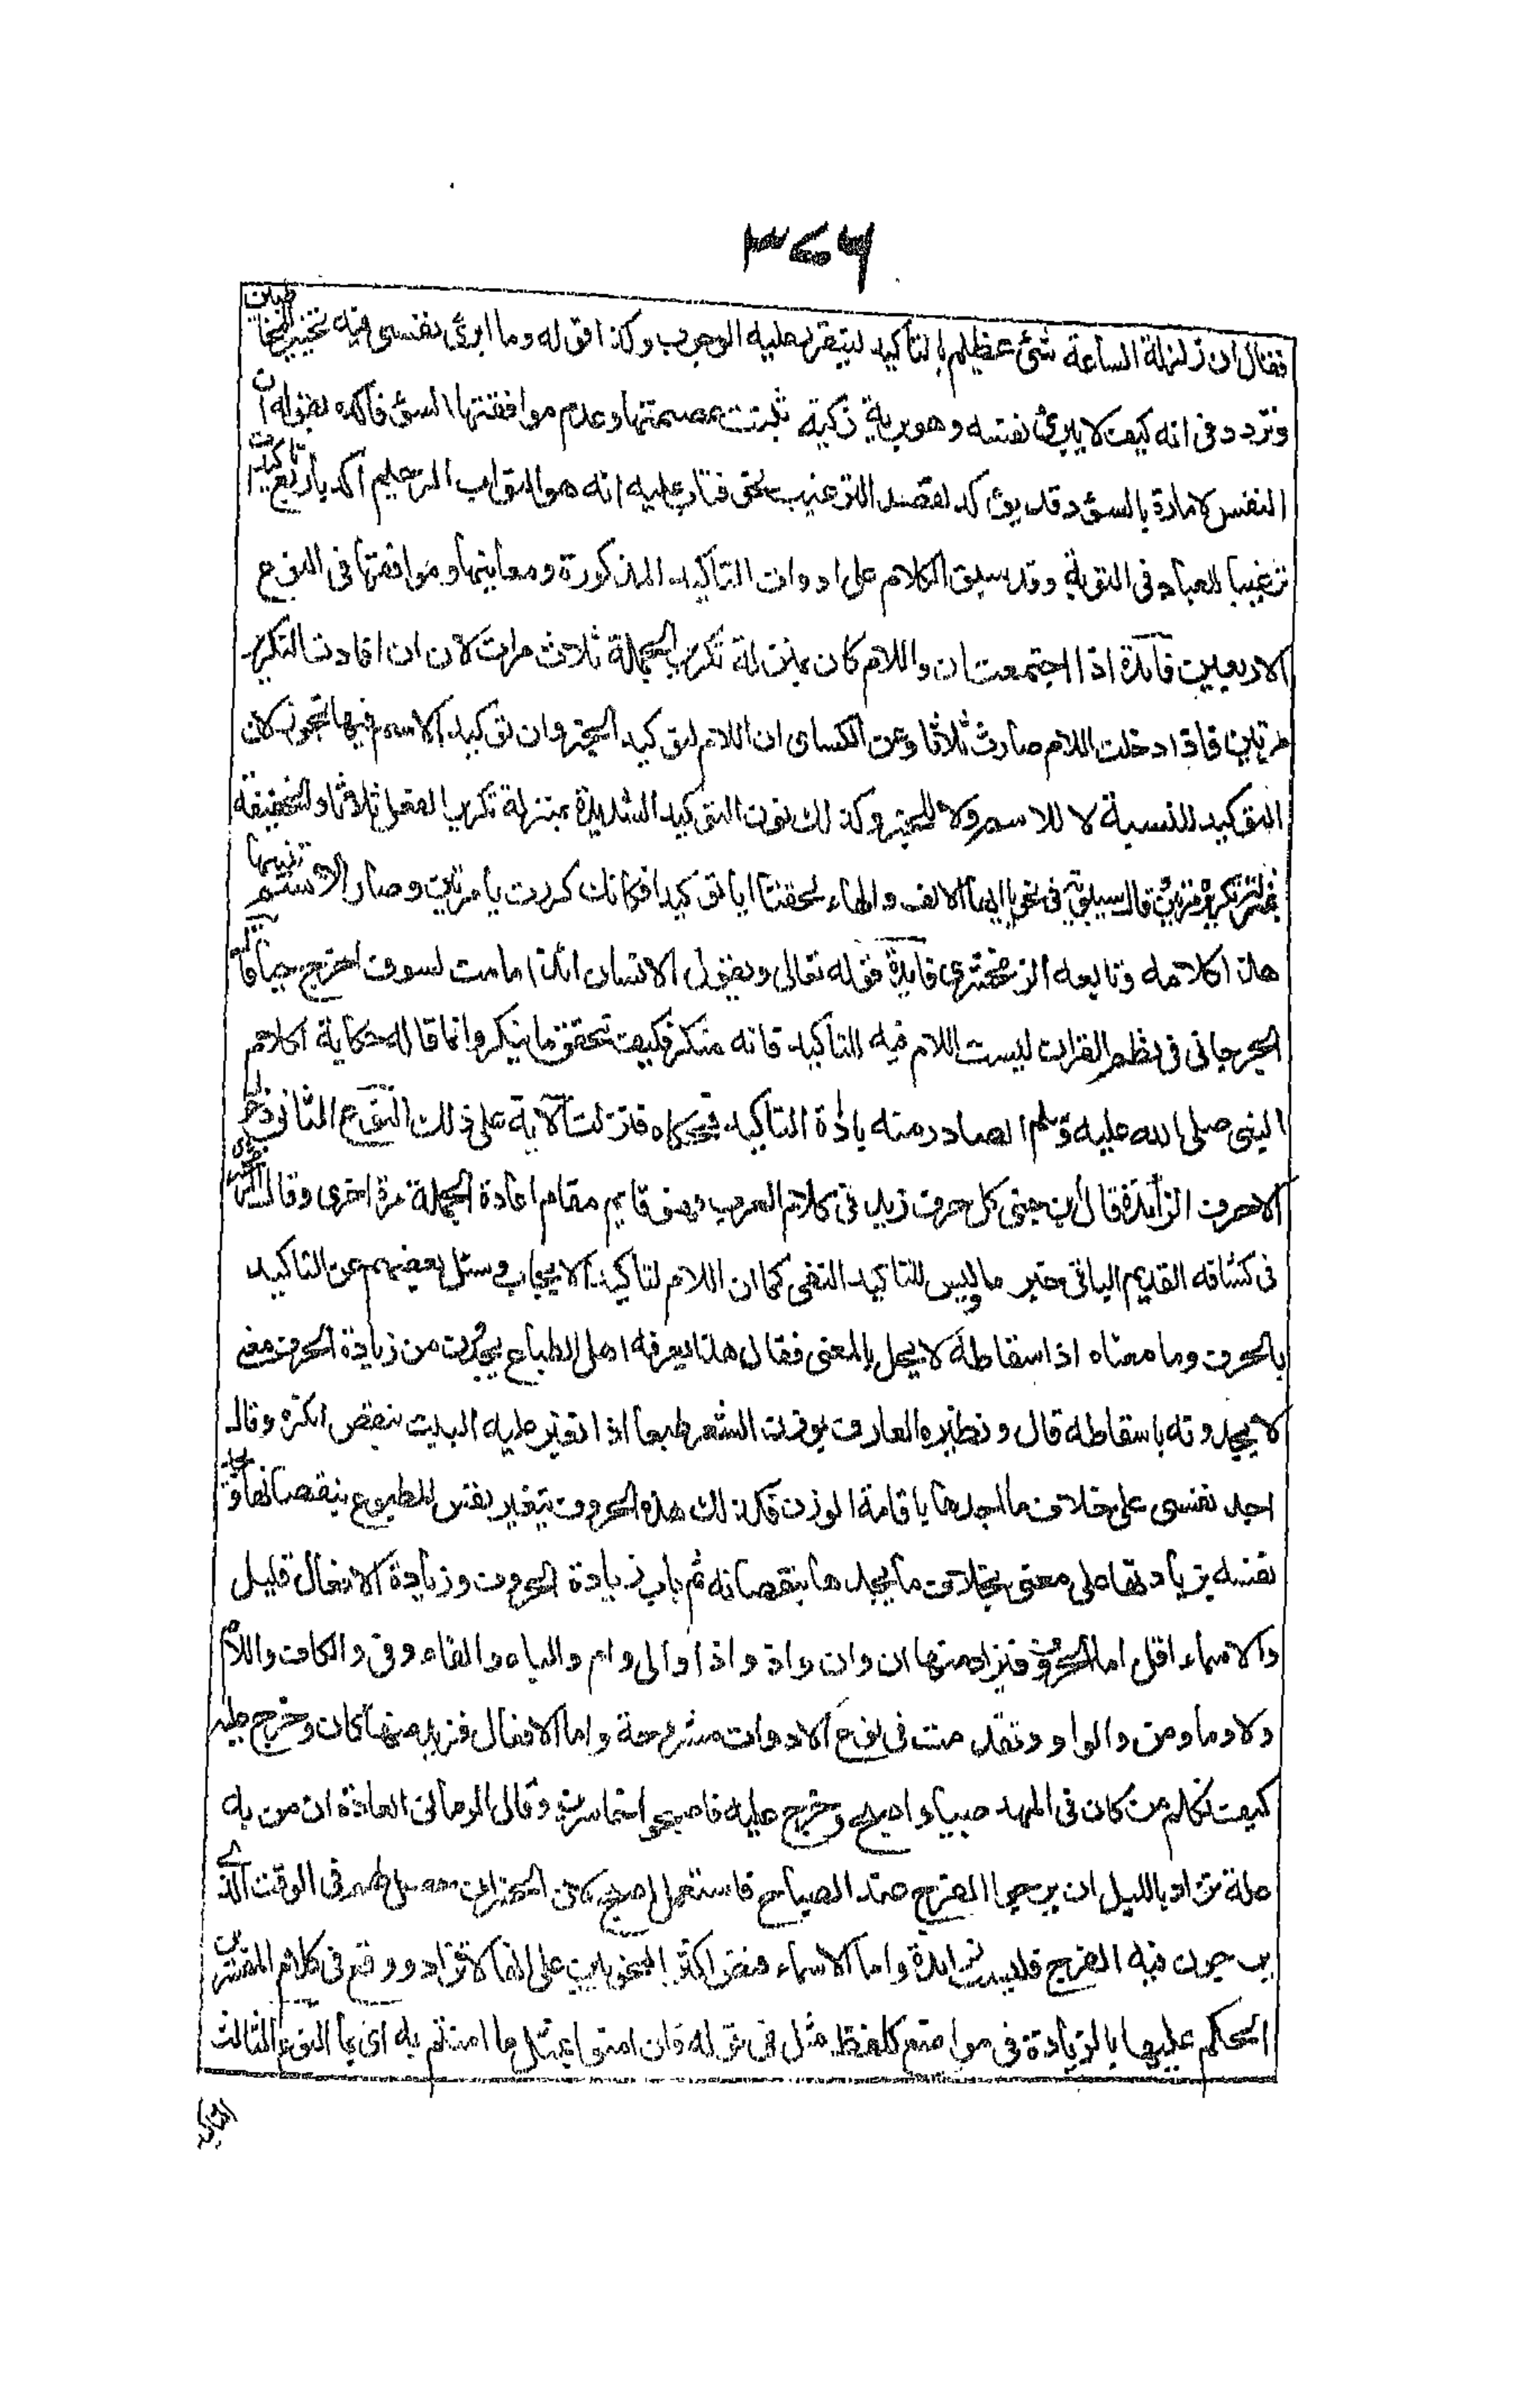 ٣٧٦
فقال ان زلزلة الساعة شئ عظيم بالتأكيد ليتقرر عليه الوجوب وكذا قوله وما ابرئ نفسى فيه تحيير للمخاطبين
وتردد فى انه كيف لا يبرئ نفسه وهو برية زكية ثبتت عصمتها وعدم موافقتها السوء فأكده بقوله ان
النفس لامارة بالسوء وقد يؤكد لقصد الترغيب نحو فتاب عليه انه هو التواب الرحيم أكد باربع تاكيدات
ترغيبا للعباد فى التوبة وقد سبق الكلام على ادوات التاكيد المذكورة ومعانيها ومواقعها فى النوع
الاربعين فائدة اذا اجتمعت ان واللام كان بمنزلة تكرير الجملة ثلاث مرات لان ان افادت التكرير
مرتين فاذا دخلت اللام صارت ثلاثا وعن الكسائى ان اللام لتوكيد الخبر وان توكيد الاسم فيها تجوز لان
التوكيد للنسبة لا للاسم ولا للخبر وكذلك نون التوكيد الشديدة بمنزلة تكرير الفعل ثلاثا والخفيفة
بمنزلة تكريره مرتين قال سيبويه فى نحو يا ايها الالف والهاء لحقتا ايا توكيدا فكانك كررت يا مرتين وصار الاسم تنبيها
هذا كلامه وتابعه الزمخشرى فايدة قوله تعالى ويقول الانسان ائذا مامت لسوف اخرج حيا قال
الجرجانى فى نظم القران ليست اللام فيه للتأكيد فانه منكر فكيف تحقق ما ينكر وانما قاله حكاية لكلام
النبى صلى الله عليه وسلم الصادر منه باداة التاكيد فحكاه فنزلت الآية على ذلك النوع الثانى دخول
الاحرف الزائدة قال بن جنى كل حرف زيد فى كلام العرب فهو قايم مقام اعادة الجملة مرة اخرى وقال الزمخشرى
فى كشافه القديم الباء فى خبر ما وليس لتاكيد النفى كما ان اللام لتاكيد الايجاب وسئل بعضهم عن التاكيد
بالحرف وما معناه اذ اسقاطه لا يخل بالمعنى فقال هذا يعرفه اهل الطباع يجدون من زيادة الحرف معنى
لا يجدونه باسقاطه قال ونظيره العارف بوزن الشعر طبعا اذا تغير عليه البيت بنقص انكره وقال
اجد نفسى على خلاف ما اجدها باقامة الوزن فكذلك هذه الحروف تتغير نفس المطبوع بنقصانها ويجد
نفسه بزيادتها على معنى بخلاف ما يجدها بنقصانه ثم باب زيادة الحروف وزيادة الافعال قليل
والاسماء اقل اما الحروف فيزاد منها ان وان واذ واذا والى وام والباء والفاء وفى والكاف واللام
ولا وما ومن والواو وتقدمت فى نوع الادوات مشروحة واما الافعال فزيد منها كان وخرج عليه
كيف نكلم من كان فى المهد صبيا واصبح وخرج عليه فاصبحوا خاسرين وقال الرمانى العادة ان من به
علة تزاد بالليل ان يرجوا الفرج عند الصباح فاستعمل اصبح لان الخسران حصل لهم فى الوقت الذى
يرجون فيه الفرج فليست زايدة واما الاسماء فنص اكثر النحويين على انها لا تزاد ووقع فى كلام المفسرين
الحكم عليها بالزيادة فى مواضع كلفظ مثل فى قوله فان امنوا بمثل ما امنتم به اى بما النوع الثالث
التاكيد